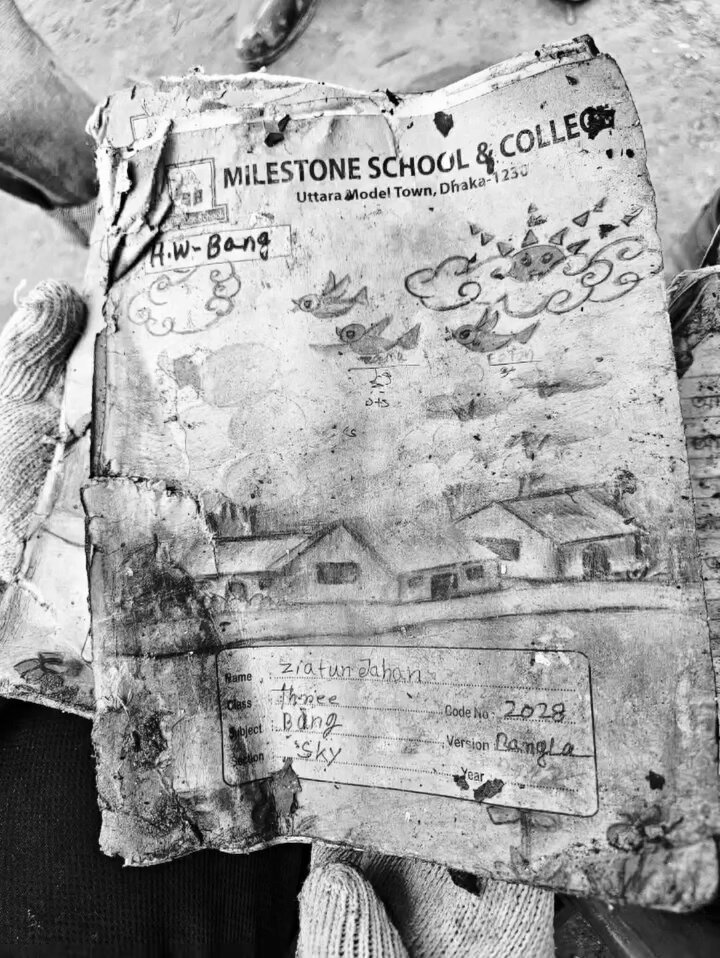 MILESTONE SCHOOL & COLLEG
Uttara Model Town, Dhaka-1230
H.W-Bang
Name : Ziatun Jahan
Class : three Code No- 2028
Subject : Bang Version Bangla
Section : Sky Year